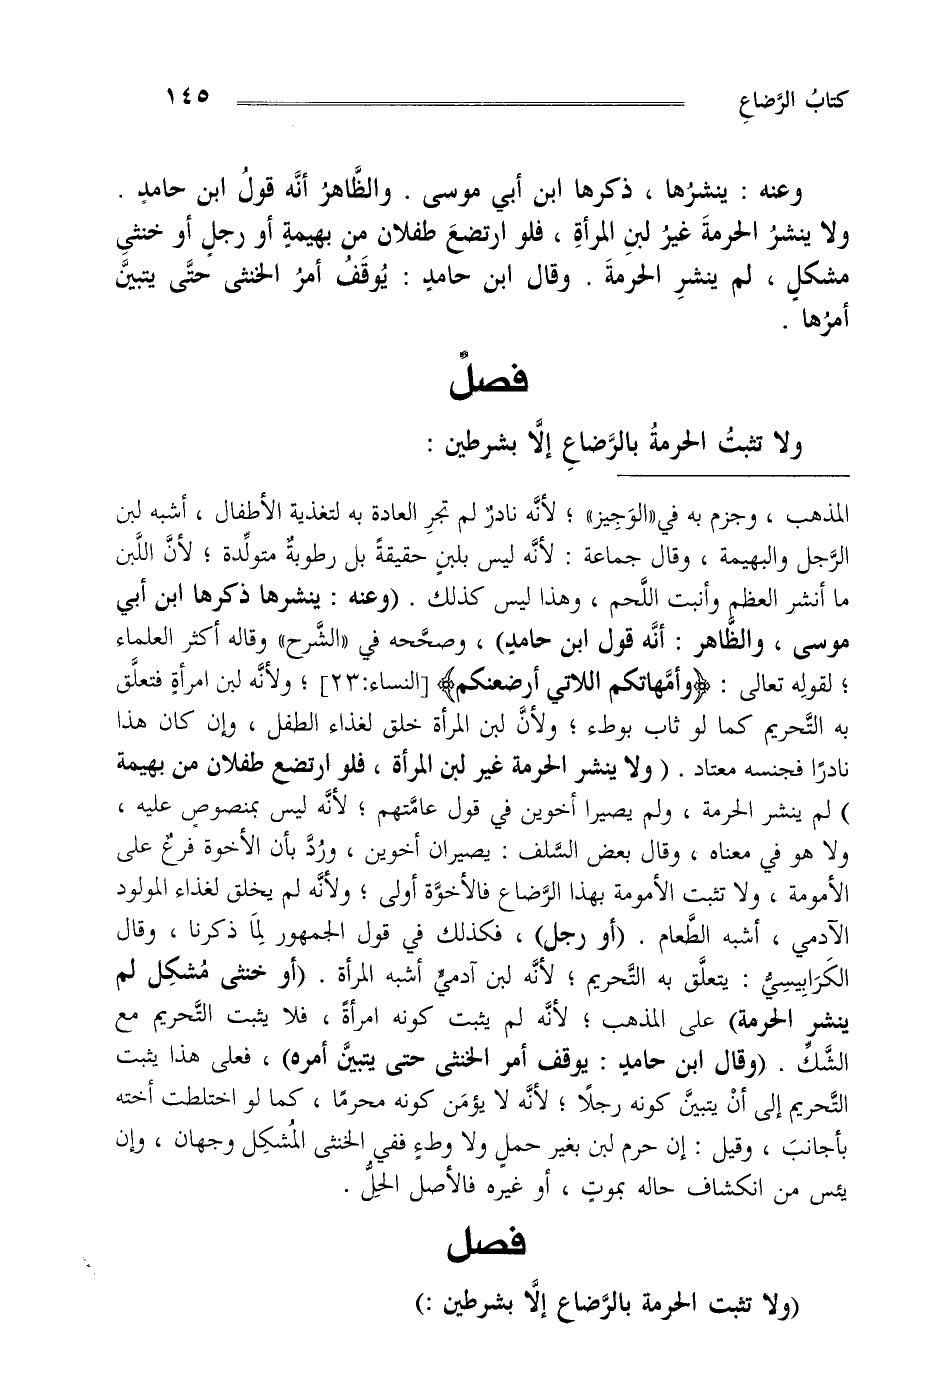 كتابُ الرَّضاعِ ١٤٥
وعنه : ينشرُها ، ذكرها ابن أبي موسى . والظَّاهرُ أنَّه قولُ ابن حامدٍ .
ولا ينشرُ الحرمةَ غيرُ لبنِ المرأةِ ، فلو ارتضعَ طفلان من بهيمةٍ أو رجلٍ أو خنثى
مشكلٍ ، لم ينشرِ الحرمةَ . وقال ابن حامدٍ : يُوقَفُ أمرُ الخنثى حتَّى يتبينَّ
أمرُها .
فصلٌ
ولا تثبتُ الحرمةُ بالرَّضاعِ إلَّا بشرطين :
المذهب ، وجزم به في«الوَجِيز» ؛ لأنَّه نادرٌ لم تجرِ العادة به لتغذية الأطفال ، أشبه لبن
الرَّجل والبهيمة ، وقال جماعة : لأنَّه ليس بلبنٍ حقيقةً بل رطوبةٌ متولِّدة ؛ لأنَّ اللَّبن
ما أنشر العظم وأنبت اللَّحم ، وهذا ليس كذلك . (وعنه : ينشرها ذكرها ابن أبي
موسى ، والظَّاهر : أنَّه قول ابن حامدٍ) ، وصحَّحه في «الشَّرح» وقاله أكثر العلماء
؛ لقولِه تعالى : ﴿وأمَّهاتكم اللاتي أرضعنكم﴾ [النساء:٢٣] ؛ ولأنَّه لبن امرأةٍ فتعلَّق
به التَّحريم كما لو ثاب بوطء ؛ ولأنَّ لبن المرأة خلق لغذاء الطفل ، وإن كان هذا
نادرًا فجنسه معتاد . ( ولا ينشر الحرمة غير لبن المرأة ، فلو ارتضع طفلان من بهيمة
) لم ينشر الحرمة ، ولم يصيرا أخوين في قول عامَّتهم ؛ لأنَّه ليس بمنصوصٍ عليه ،
ولا هو في معناه ، وقال بعض السَّلف : يصيران أخوين ، ورُدَّ بأن الأخوة فرعٌ على
الأمومة ، ولا تثبت الأمومة بهذا الرَّضاع فالأخوَّة أولى ؛ ولأنَّه لم يخلق لغذاء المولود
الآدمي ، أشبه الطَّعام . (أو رجل) ، فكذلك في قول الجمهور لِمَا ذكرنا ، وقال
الكَرَابِيسِيُّ : يتعلَّق به التَّحريم ؛ لأنَّه لبن آدميٍّ أشبه المرأة . (أو خنثى مُشكِل لم
ينشر الحرمة) على المذهب ؛ لأنَّه لم يثبت كونه امرأةً ، فلا يثبت التَّحريم مع
الشَّكِّ . (وقال ابن حامدٍ : يوقف أمر الخنثى حتى يتبينَّ أمره) ، فعلى هذا يثبت
التَّحريم إلى أنْ يتبينَّ كونه رجلًا ؛ لأنَّه لا يؤمَن كونه محرمًا ، كما لو اختلطت أخته
بأجانبَ ، وقيل : إن حرم لبن بغير حملٍ ولا وطءٍ ففي الخنثى المُشكِل وجهان ، وإن
يئس من انكشاف حاله بموتٍ ، أو غيره فالأصل الحِلُّ .
فصل
(ولا تثبت الحرمة بالرَّضاع إلَّا بشرطين :)